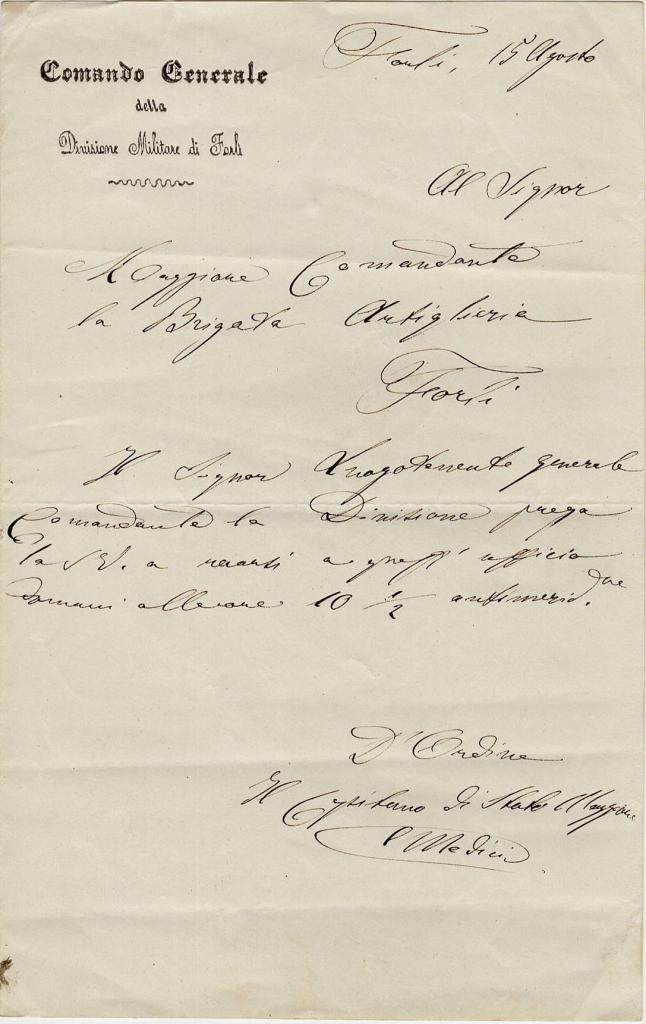 Comando Generale
della
Divisione Militare di Forlì
Forlì, 15 Agosto
Al Signor
Maggiore Comandante
la Brigata Artiglieria
Forlì
Il Signor Luogotenente generale
Comandante la Divisione prega
la S.V. a recarsi a quest' ufficio
domani alle ore 10 1/2 antimerid.ne
D'Ordine
Il Capitano di Stato Maggiore
Medici